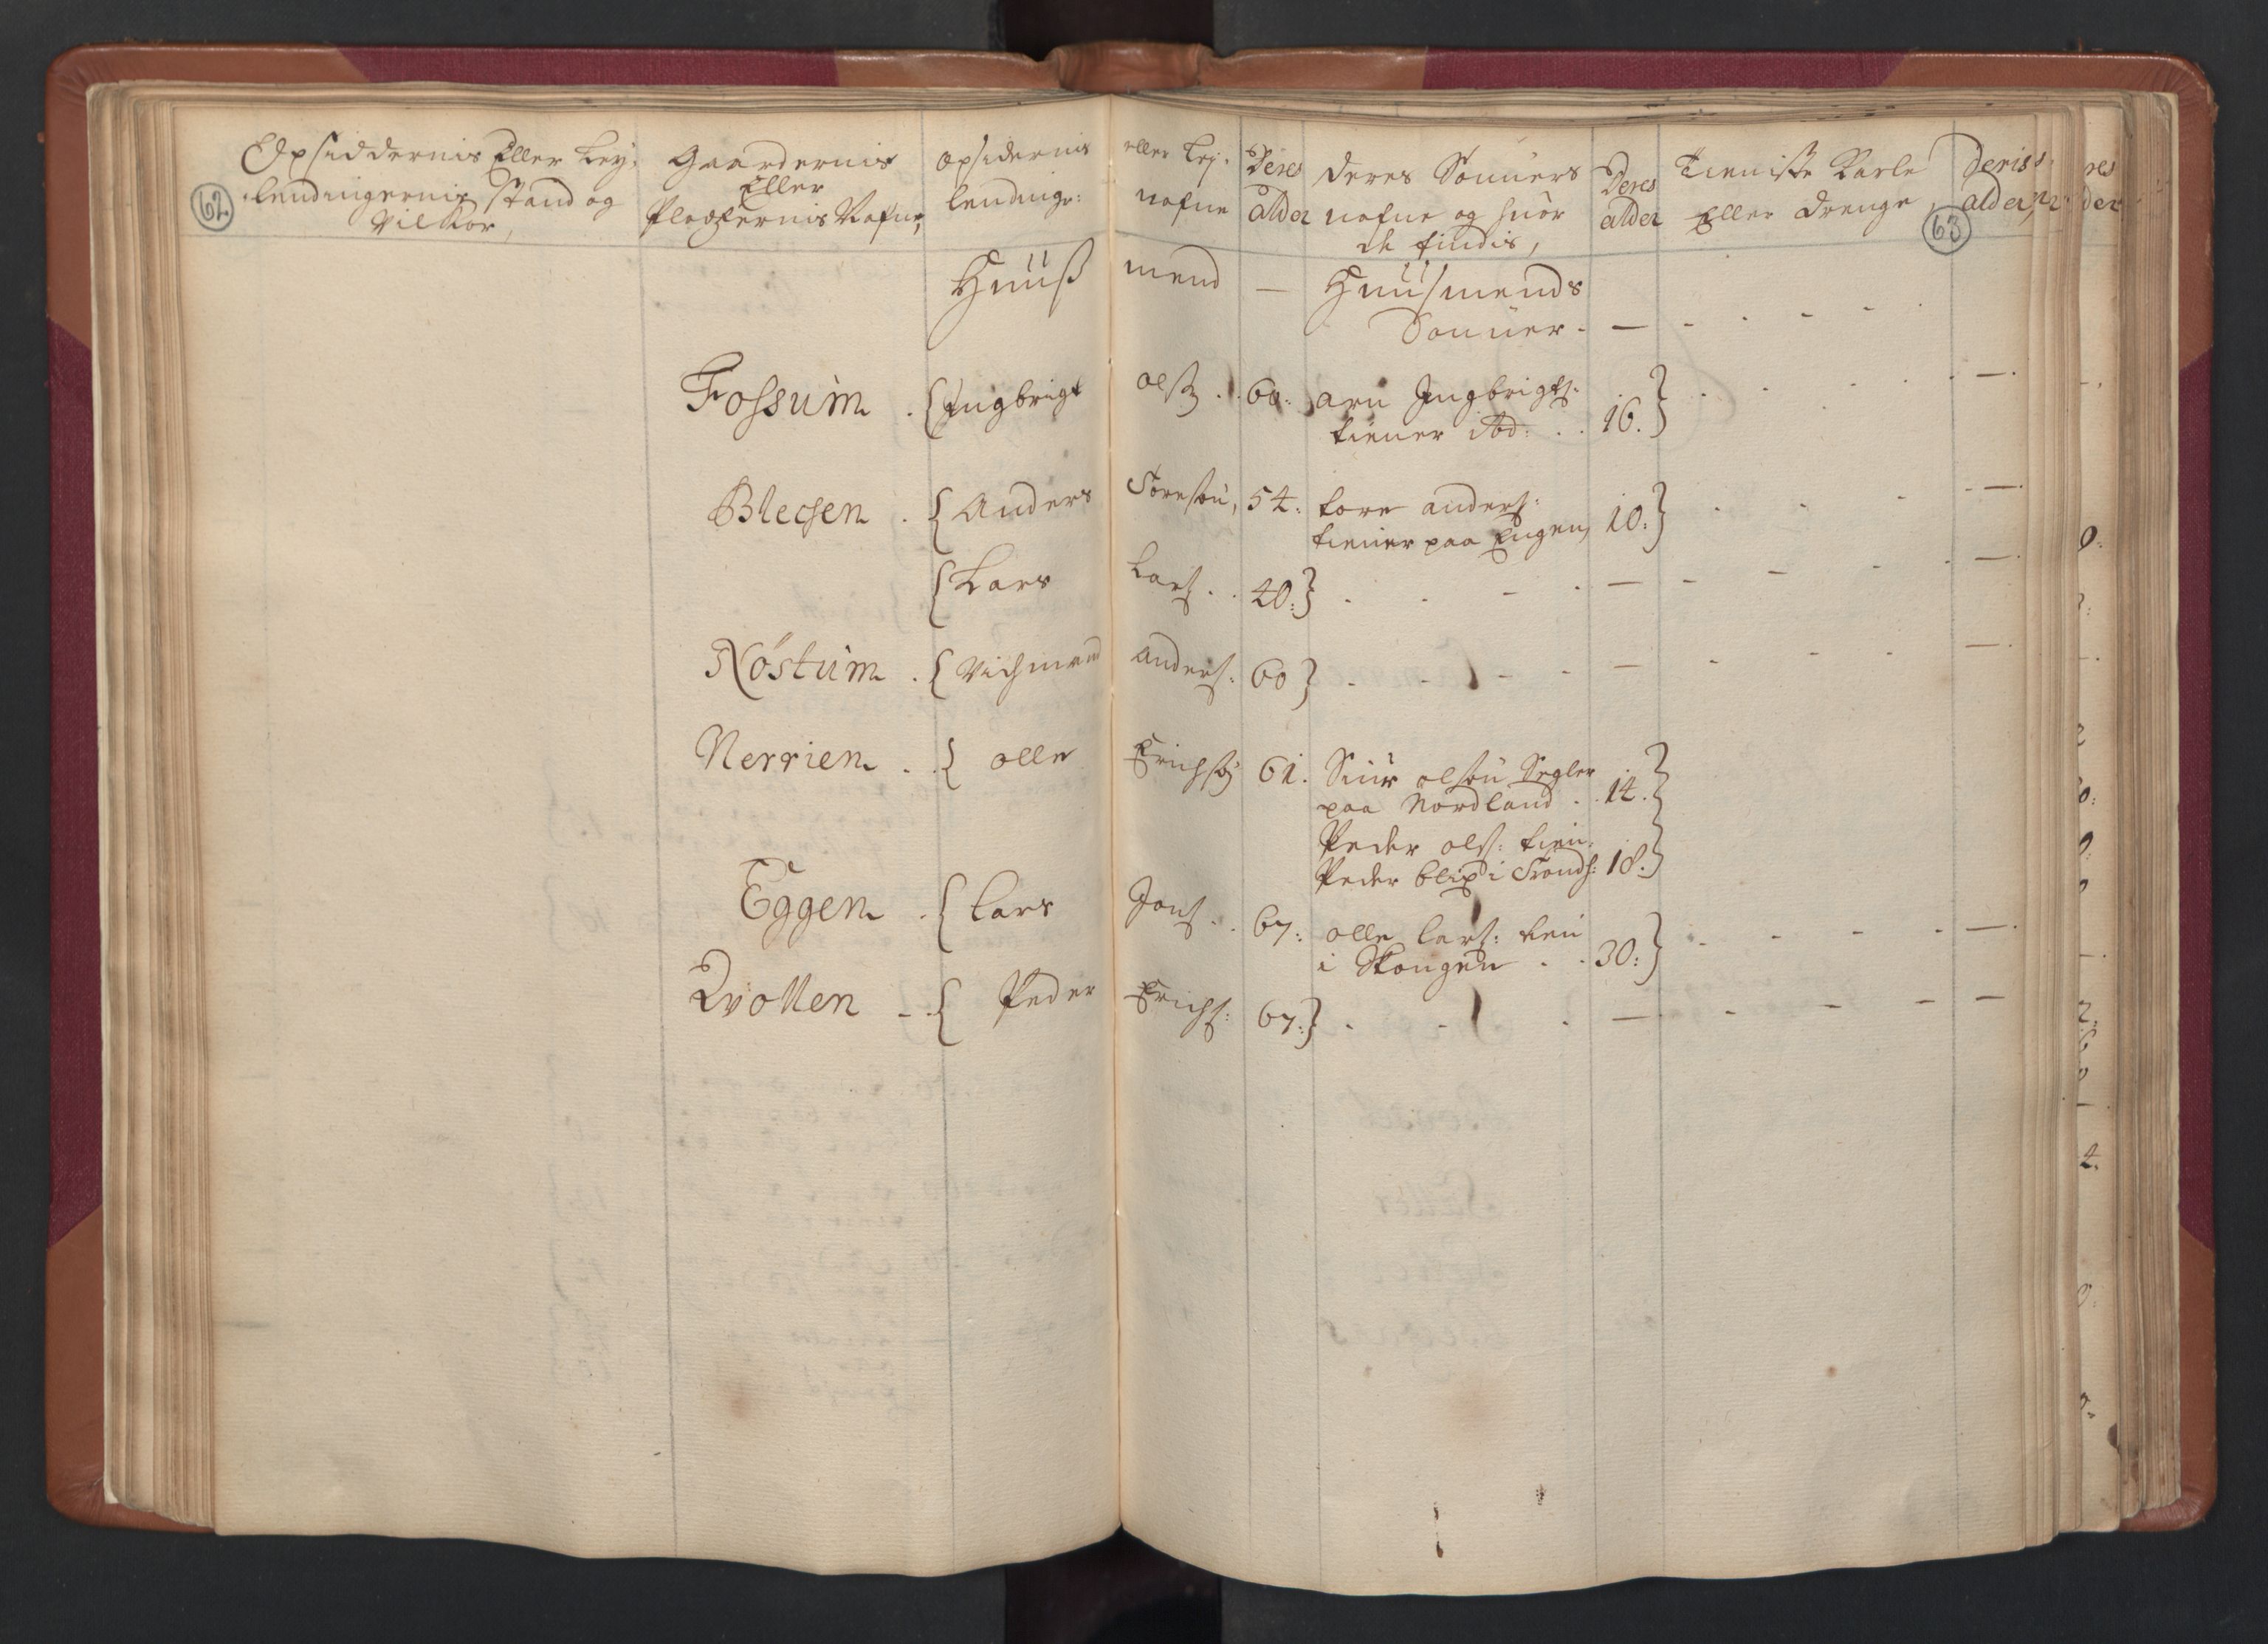 62
Opsiddernis Eller Ley,
lendingernis Stand og
Vilkor,
Gaardernis
Eller
Pladzernis Nafne,
opsidernis
lendinge:
eller Ley:
nafne
Deres
alder
deres Sønners
nafne og huor
de findis,
Deres
alder
Tieniste Karle
Eller drenge,
Deris
alder,
63
Huuß mend — Huusmends
Sønner - —
Fossum . { Ingbrigt olss . . 60: arn Ingbrigts:
tiener ibd: . . 16. }
Blechen . { Anders Toresøn, 54: tore anders:
tiener paa Engen, 10: }
{ Lars Lars . . 40: } —
Nøstum . { Vichmand anders: 60 } —
Nerrien . . { olle Erichss 61. Siur olsøn Segler
paa Nordland . . 14. }
Peder ols: tien:
Peder blix i Trondh: 18. }
Eggen . { Lars Jons . . 67: olle lars: tien
i Skongen . . 30: }
Qvollen - . { Peder Erichs: 67: } —